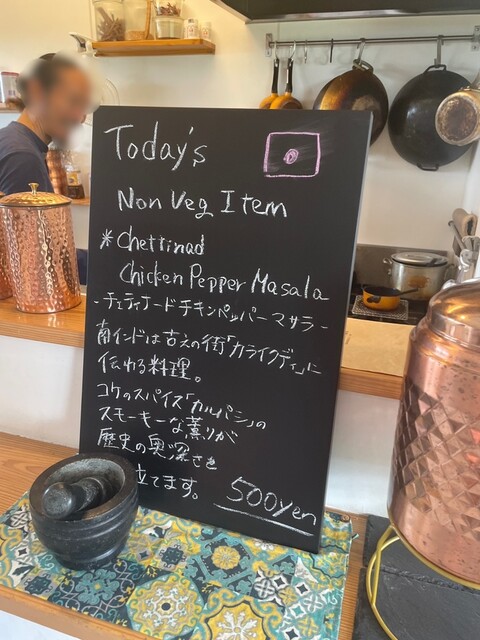 Today's
Non Veg Item
* Chettinad
Chicken Pepper Masala
- チェティナードチキンペッパーマサラ -
南インドは古えの街「カライクディ」に
伝わる料理。
コケのスパイス「カルパシ」の
スモーキーな薫りが
歴史の奥深さを
立てます。
500yen